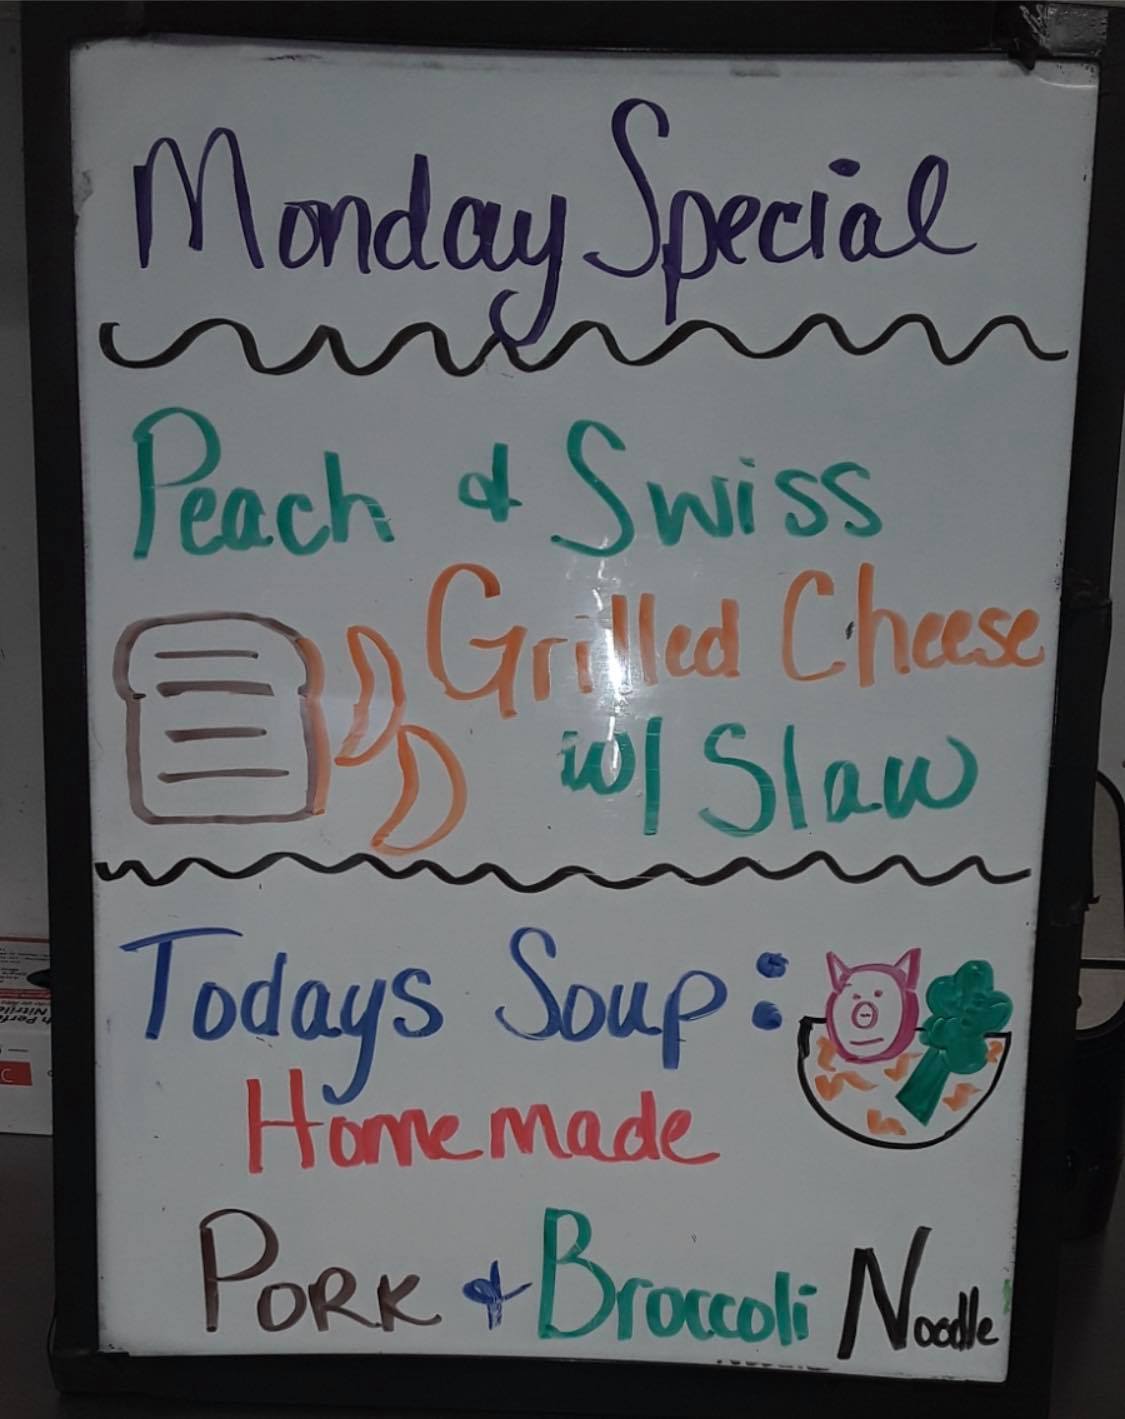 Monday Special
Peach & Swiss
Grilled Cheese
w/ Slaw
Todays Soup:
Homemade
Pork & Broccoli Noodle